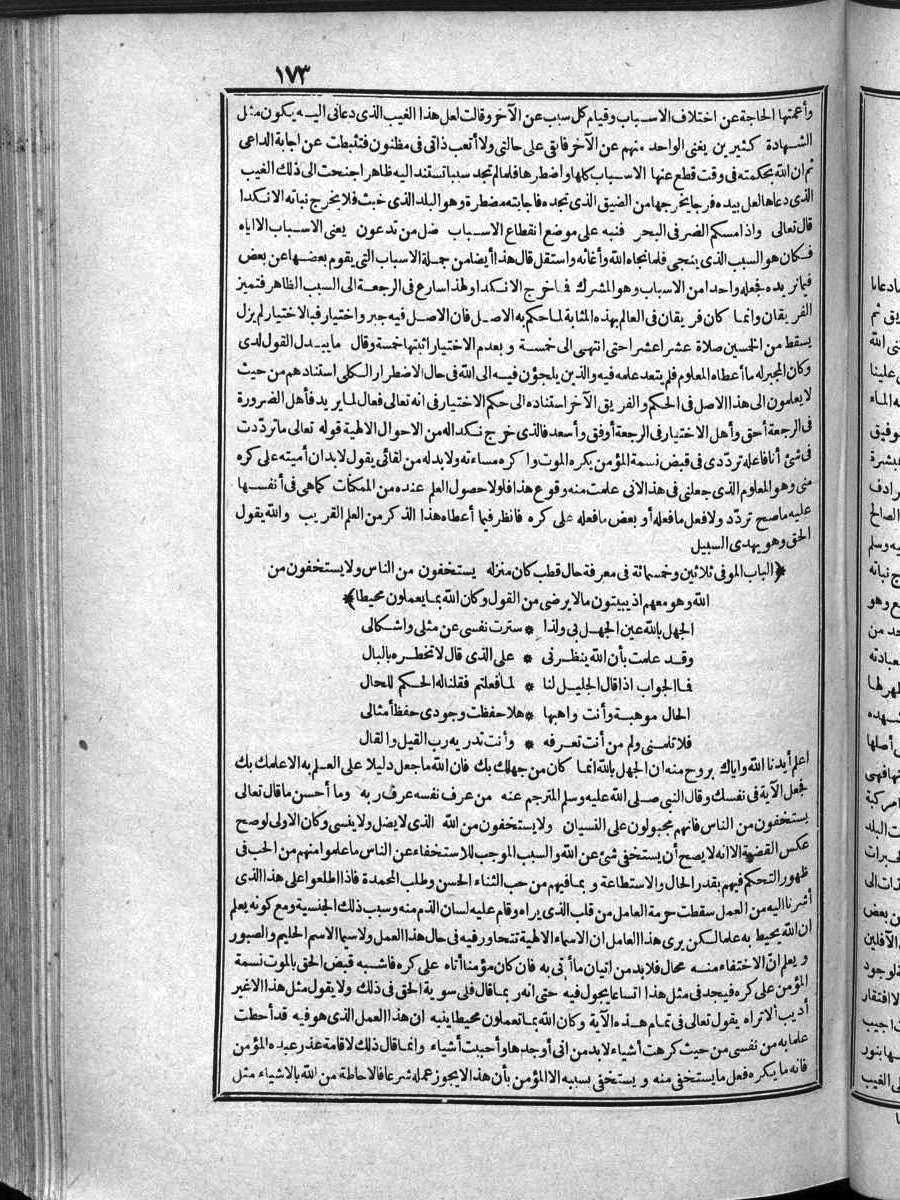 ١٧٣
وأعمتها الحاجة عن اختلاف الاسباب وقيام كل سبب عن الآخر وقالت لعل هذا الغيب الذى دعانى اليه يكون مثل
الشهادة كثيرين يغنى الواحد منهم عن الآخر فابقى على حالتى ولا أتعب ذاتى فى مظنون فتثبطت عن اجابة الداعى
ثم ان الله بحكمته فى وقت قطع عنها الاسباب كلها واضطرها فلما لم تجد سببا تستند اليه ظاهرا جنحت الى ذلك الغيب
الذى دعاها لعل بيده فرجا يخرجها من الضيق الذى تجده فاجابته مضطرة وهو البلد الذى خبث فلا يخرج نباته الا نكدا
قال تعالى واذا مسكم الضر فى البحر فنبه على موضع انقطاع الاسباب ضل من تدعون يعنى الاسباب الا اياه
فكان هو السبب الذى ينجى فلما نجاه الله وأغاثه واستقل قال هذا أيضا من جملة الاسباب التى يقوم بعضها عن بعض
فيما نريده فجعله واحدا من الاسباب وهو المشرك فما خرج الا نكدا ولهذا سارع فى الرجعة الى السبب الظاهر فتميز
الفريقان وانما كان فريقان فى العالم بهذه المثابة لما حكم به الاصل فان الاصل فيه جبر واختيار فبالاختيار لم يزل
يسقط من الخمسين صلاة عشرا عشرا حتى انتهى الى خمسة وبعدم الاختيار اثبتها خمسة وقال ما يبدل القول لدى
وكان المجبر له ما أعطاه المعلوم فلم يتعد علمه فيه والذين يلجؤن فيه الى الله فى حال الاضطرار الكلى استنادهم من حيث
لا يعلمون الى هذا الاصل فى الحكم والفريق الآخر استناده الى حكم الاختيار فى انه تعالى فعال لما يريد فأهل الضرورة
فى الرجعة أحق وأهل الاختيار فى الرجعة أوفق وأسعد فالذى خرج نكدا له من الاحوال الالهية قوله تعالى ما تردّدت
فى شئ أنا فاعله تردّدى فى قبض نسمة المؤمن يكره الموت واكره مساءته ولا بد له من لقائى يقول لا بد ان أميته على كره
منى وهو المعلوم الذى جعلنى فى هذا لانى علمت منه وقوع هذا فلولا حصول العلم عنده من الممكنات كما هى فى أنفسها
عليه ما صح تردّد ولا فعل ما فعله أو بعض ما فعله على كره فانظر فيما أعطاه هذا الذكر من العلم الغريب والله يقول
الحق وهو يهدى السبيل
﴿الباب الموفى ثلاثين وخمسمائة فى معرفة حال قطب كان منزله يستخفون من الناس ولا يستخفون من
الله وهو معهم اذ يبيتون ما لا يرضى من القول وكان الله بما يعملون محيطا﴾
الجهل بالله عين الجهل بى ولذا * سترت نفسى عن مثلى واشكالى
وقد علمت بأن الله ينظرنى * على الذى قال لا تخطره بالبال
فما الجواب اذا قال الجليل لنا * لما فعلتم فقلنا له الحكم للحال
الحال موهبة وأنت واهبها * هلا حفظت وجودى حفظ أمثالى
فلا تلمنى ولم من أنت تعرفه * وأنت تدريه رب القيل والقال
اعلم أيدنا الله واياك بروح منه ان الجهل بالله انما كان من جهلك بك فان الله ما جعل دليلا على العلم به الا علمك بك
فجعل الآية فى نفسك وقال النبى صلى الله عليه وسلم المترجم عنه من عرف نفسه عرف ربه وما أحسن ما قال تعالى
يستخفون من الناس فانهم مجبولون على النسيان ولا يستخفون من الله الذى لا يضل ولا ينسى وكان الاولى لو صح
عكس القضية الا انه لا يصح أن يستخفى شئ عن الله والسبب الموجب للاستخفاء عن الناس ما علموا منهم من الحب فى
ظهور التحكم فيهم بقدر الحال والاستطاعة وبما فيهم من حب الثناء الحسن وطلب المحمدة فاذا اطلعوا على هذا الذى
أشرنا اليه من العمل سقطت حرمة العامل من قلب الذى يراه وقام عليه لسان الذم منه وسبب ذلك الجنسية ومع كونه يعلم
ان الله يحيط به علما لكن يرى هذا العامل ان الاسماء الالهية تتحاور فيه فى حال هذا العمل ولا سيما الاسم الحليم والصبور
ويعلم ان الاختفاء منه محال فلا بد من اتيان ما أتى به فان كان مؤمنا أتاه على كره فاشبه قبض الحق بالموت نسمة
المؤمن على كره فيجد فى مثل هذا اتساعا يجول فيه حتى انه ربما قال فلى سوية الحق فى ذلك ولا يقول مثل هذا الا غير
أديب ألا تراه يقول تعالى فى تمام هذه الآية وكان الله بما تعملون محيطا ينبه ان هذا العمل الذى هو فيه قد أحطت
علما به من نفسى من حيث كرهت أشياء لا بد من انى أوجدها وأحببت أشياء وانما قال ذلك لاقامة عذر عبده المؤمن
فانه ما يكره فعل ما يستخفى منه ويستخفى بسببه الا المؤمن بأن هذا لا يجوز عمله شرعا فالاحاطة من الله بالاشياء مثل